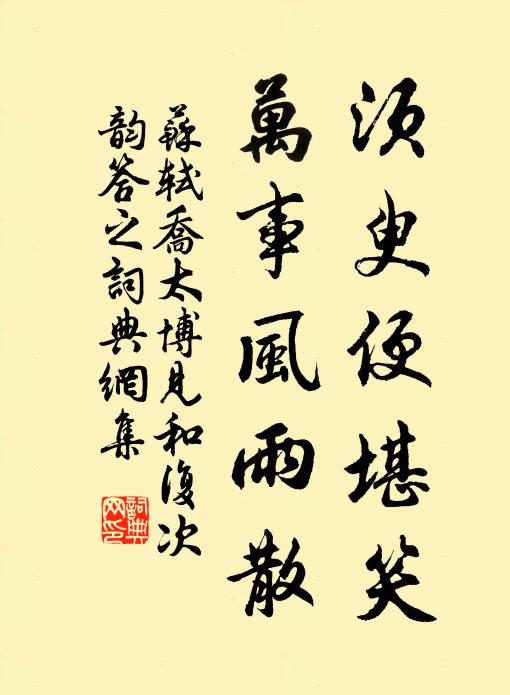 須臾便堪笑
萬事風雨散
蘇軾喬太博見和復次
韵答之詞典網集
詞典
網印